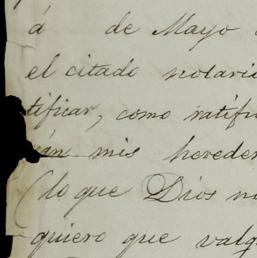 á de Mayo
el citado notario
tificar, como ratifi
án mis hereder
(lo que Dios no
quiero que valg